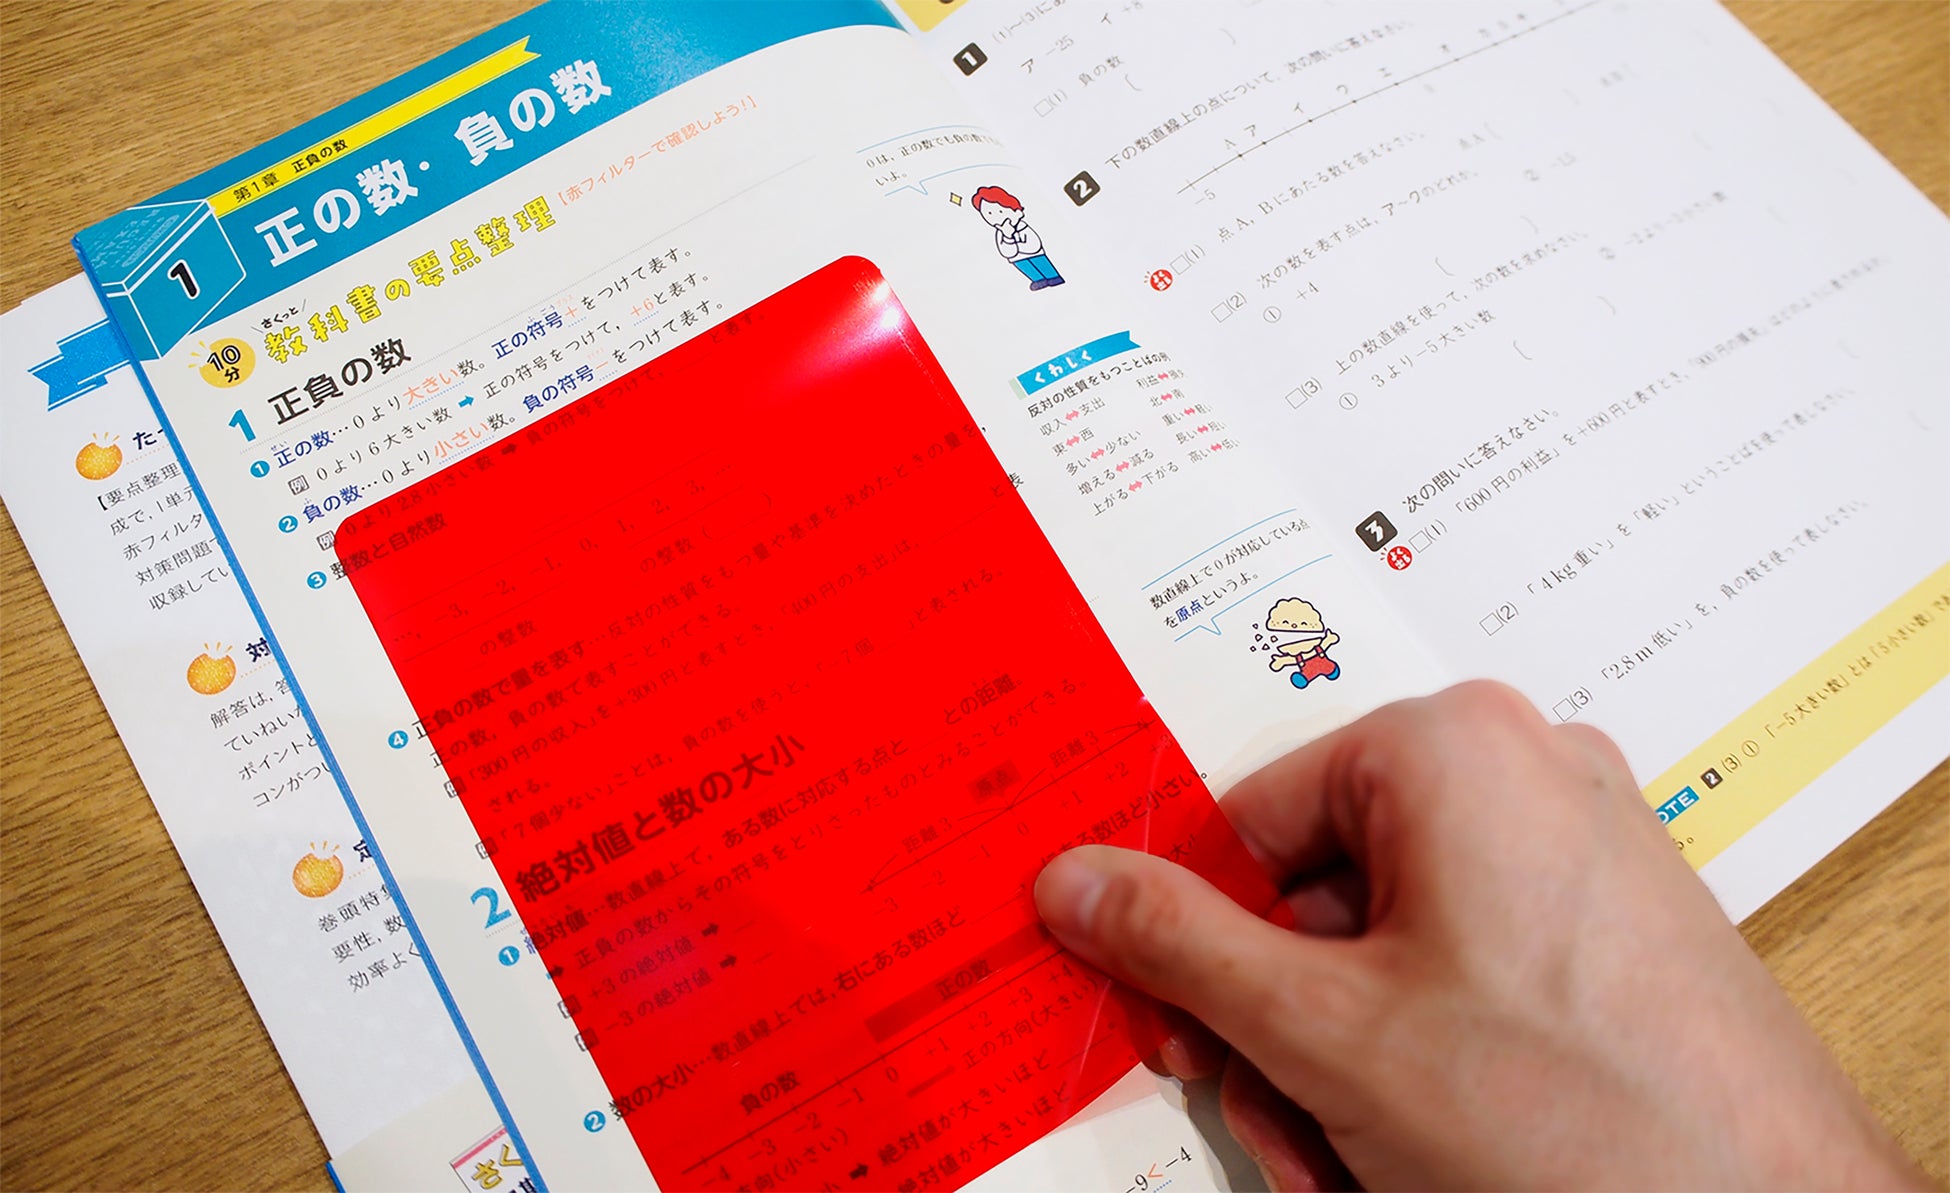 第1章 正負の数
1 正の数・負の数
10分 さくっと 教科書の要点整理【赤フィルターで確認しよう!】
1 正負の数
❶ 正の数…0より大きい数。正の符号+をつけて表す。
例 0より6大きい数➡正の符号をつけて,+6と表す。
❷ 負の数…0より小さい数。負の符号−をつけて表す。
例 0より2.8小さい数➡負の符号をつけて, と表す。
❸ 整数と自然数
…, −3, −2, −1, 0, 1, 2, 3, …
の整数 の整数( )
❹ 正負の数で量を表す…反対の性質をもつ量や基準を決めたときの量を,
正の数,負の数で表すことができる。
例 「300円の収入」を+300円と表すとき,「400円の支出」は, と表
される。
例 「7個少ない」ことは,負の数を使うと,「−7個 」と表される。
2 絶対値と数の大小
❶ 絶対値…数直線上で,ある数に対応する点と との距離
➡ 正負の数からその符号をとりさったものとみることができる。
例 +3の絶対値➡
例 −3の絶対値➡
距離3 原点 距離3
−3 −2 −1 0 +1 +2
❷ 数の大小…数直線上では,右にある数ほど
数ほど小さい。
負の数 正の数
−4 −3 −2 −1 0 +1 +2 +3 +4
方向(小さい) 正の方向(大きい)
➡ 絶対値が大きいほど
絶対値が大きいほど
−9<−4
0は,正の数でも負の数
いよ。
くわしく
反対の性質をもつことばの例
収入⇔支出 利益⇔損
東⇔西 北⇔南
多い⇔少ない 重い⇔軽
増える⇔減る 長い⇔短
上がる⇔下がる 高い⇔低
数直線上で0が対応している点
を原点というよ。
1 (1)〜(3)にあ
ア −25 イ +8
□(1) 負の数
2 下の数直線上の点について,次の問いに答えなさい。
A ア イ ウ エ オ
−5
よく出る □(1) 点A,Bにあたる数を答えなさい。
点A
□(2) 次の数を表す点は,ア〜クのどれか。
① +4
□(3) 上の数直線を使って,次の数を求めなさい。
① 3より−5大きい数
3 次の問いに答えなさい。
よく出る □(1) 「600円の利益」を+600円と表すとき,
□(2) 「4kg重い」を「軽い」ということばを使って表しなさい。
□(3) 「2.8m低い」を,負の数を使って表しなさい。
OTE 2 (3) ① 「−5大きい数」とは「5小さい数」
【要点整理
成で,1単元
赤フィルタ
対策問題
収録してい
対
解答は,答
ていねいな
ポイントと
コンがつい
定
巻頭特集
要性,数
効率よく
さく